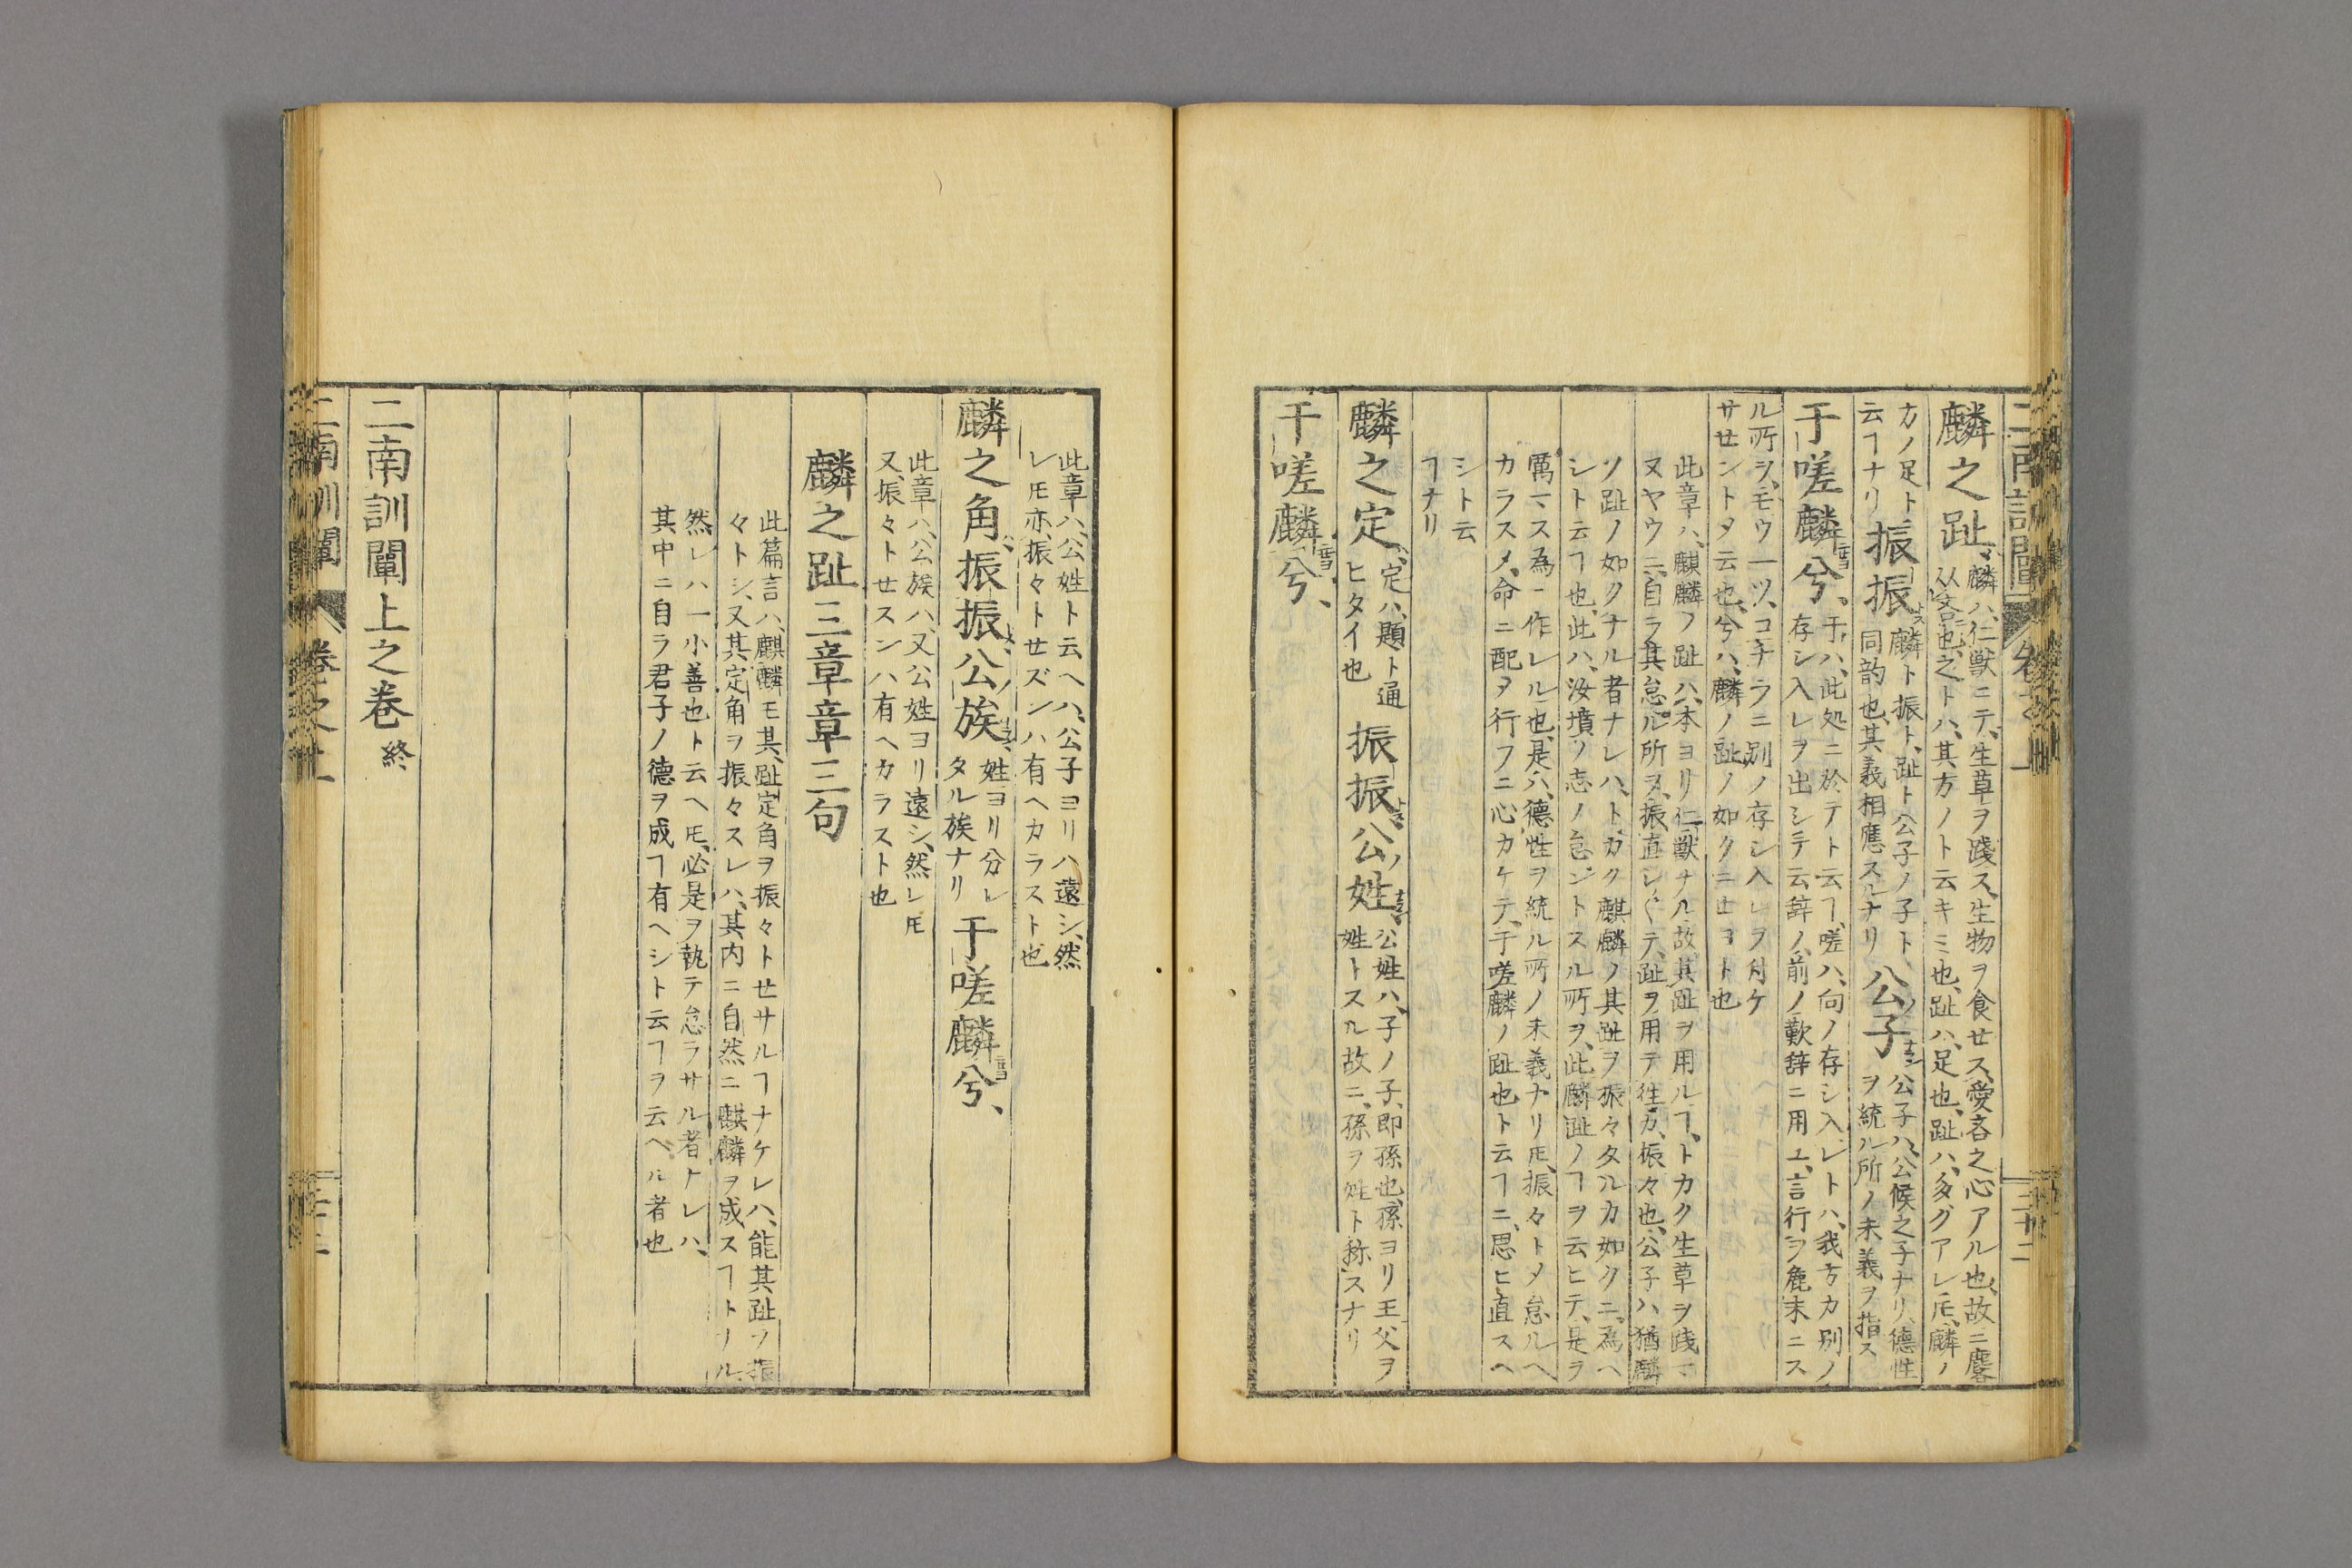 麟之趾、麟ハ、仁獣ニテ、生草ヲ踐ス、生物ヲ食セス、愛吝之心アル也、故ニ麐
从吝也、之トハ、其方ノト云キミ也、趾ハ、足也、趾ハ、多グアレ𪜈、麟ノ
カノ足ト、振振麟ト振ト、趾ト公子ノ子ト、公子公子ハ、公候之子ナリ、德性
云ヿナリ同韵也、其義相應スルナリヲ統ル所ノ末義ヲ指ス
于嗟麟兮、于ハ、此処ニ於テト云ヿ、嗟ハ、向ノ存シ入レトハ、我方カ別ノ
存シ入レヲ出シテ云辞ノ、前ノ歎辞ニ用ユ、言行ヲ麁末ニス
ル所ヲ、モウ一ツ、コチラニ別ノ存シ入レヲ付ケ
サセントヲ云也、兮ハ、麟ノ趾ノ如クニセヨト也
此章ハ、麒麟ノ趾ハ、本ヨリ仁獣ナル故、其趾ヲ用ルヿ、トカク生草ヲ踐マ
ヌヤウニ、自ラ其怠ル所ヲ、振直シ〱テ、趾ヲ用テ往カ、振々也、公子ハ、猶麟
ソ趾ノ如クナル者ナレハ、トカク麒麟ノ其趾ヲ振々タルカ如クニ、為ヘ
シト云ヿ也、此ハ、汝墳ノ志ノ怠ジトスル所ヲ、此麟趾ノヿヲ云ヒテ、是ヲ
厲マス為ニ作レル也、是ハ、德性ヲ統ル所ノ末義ナリ𪜈、振々トメ怠ルヘ
カラスメ、命ニ配ヲ行フニ心カケテ、于嗟麟ノ趾也ト云ヿニ、思ヒ直スヘ
シト云
ヿナリ
麟之定、定ハ、題ト通振振公姓、公姓ハ、子ノ子、即孫也、孫ヨリ王父ヲ
ヒタイ也姓トスル故ニ、孫ヲ姓ト称スナリ
于嗟麟兮、
此章ハ、公姓ト云ヘハ、公子ヨリハ遠シ、然
レ𪜈亦、振々トセズンハ有ヘカラスト也
麟之角、振振公族、姓ヨリ分レ于嗟麟兮、
タル族ナリ
此章ハ、公族ハ、又公姓ヨリ遠シ、然レ𪜈
又、振々トセスンハ有ヘカラスト也
麟之趾三章章三句
此篇言ハ、麒麟モ其、趾定角ヲ振々トセサルヿナケレハ、能其趾ヲ振
々トシ、又其定角ヲ振々スレハ、其内ニ自然ニ麒麟ヲ成スヿトソル、
然レハ一小善也ト云ヘ𪜈、必是ヲ執テ怠ラサル者ナレハ、
其中ニ自ラ君子ノ德ヲ成ヿ有ヘシト云ヿヲ云ヘル者也
二南訓闡上之巻終
二南訓闡 巻之上